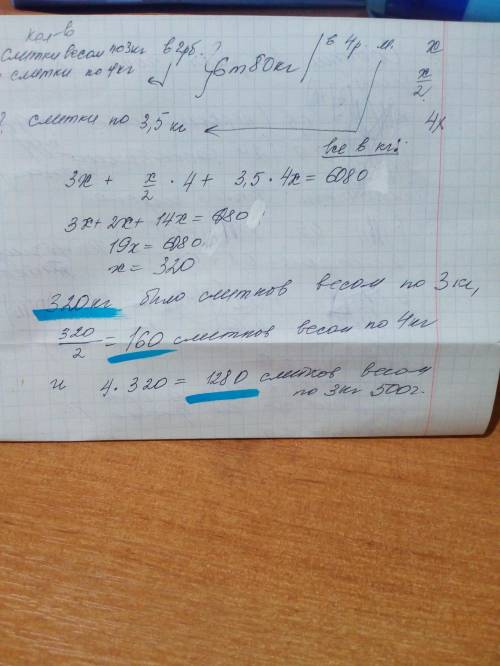 кол-в
Слитки весом по 3кг в 2рб. ? 6т 80кг в 4р м. x
слитки по 4кг x/2
? слитки по 3,5 кг 4x
все в кг:
3x + x/2 · 4 + 3,5 · 4x = 6080
3x + 2x + 14x = 6080
19x = 6080
x = 320
320кг было слитков весом по 3 кг,
320/2 = 160 слитков весом по 4кг
и 4 · 320 = 1280 слитков весом
по 3кг 500г.